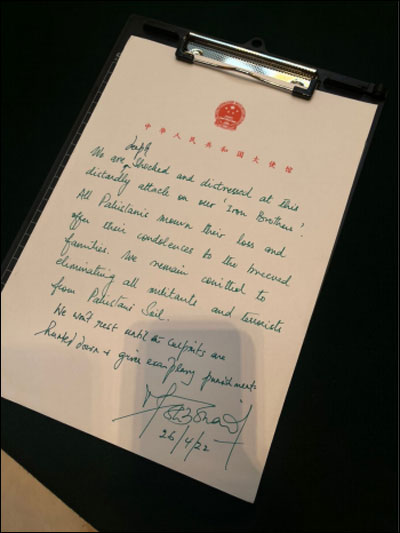 中华人民共和国大使馆
deeply
We are shocked and distressed at this
dastardly attack on our 'Iron Brothers'.
All Pakistanis mourn their loss and
offer their condolences to the bereaved
families. We remain comitted to
eliminating all militants and terrorists
from Pakistani Soil.
We won't rest until culprits are
hunted down & given exemplary punishments
26/4/22